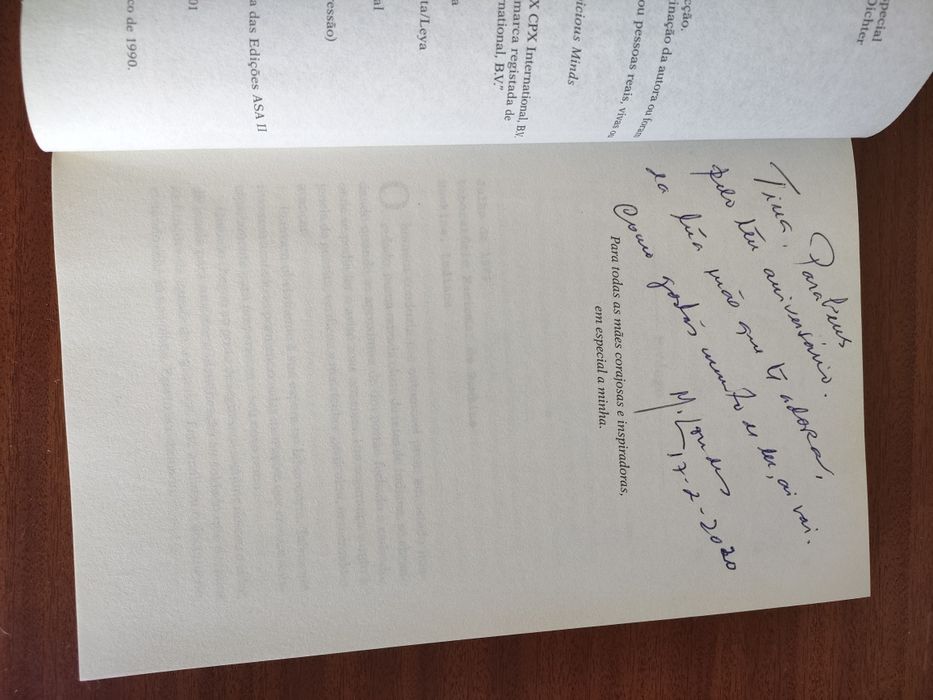 special
Dichter
cção.
inação da autora ou foram
ou pessoas reais, vivas ou
icious Minds
X CPX International, B.V.
marca registada de
national, B.V."
a
ta/Leya
al
ressão)
01
a das Edições ASA II
ço de 1990.
Parabéns
Tina,
pelo teu aniversário.
da tua mãe que te adora,
Como gostas muito de ler, aí vai.
M. Lourdes
17-2-2020
Para todas as mães corajosas e inspiradoras,
em especial a minha.